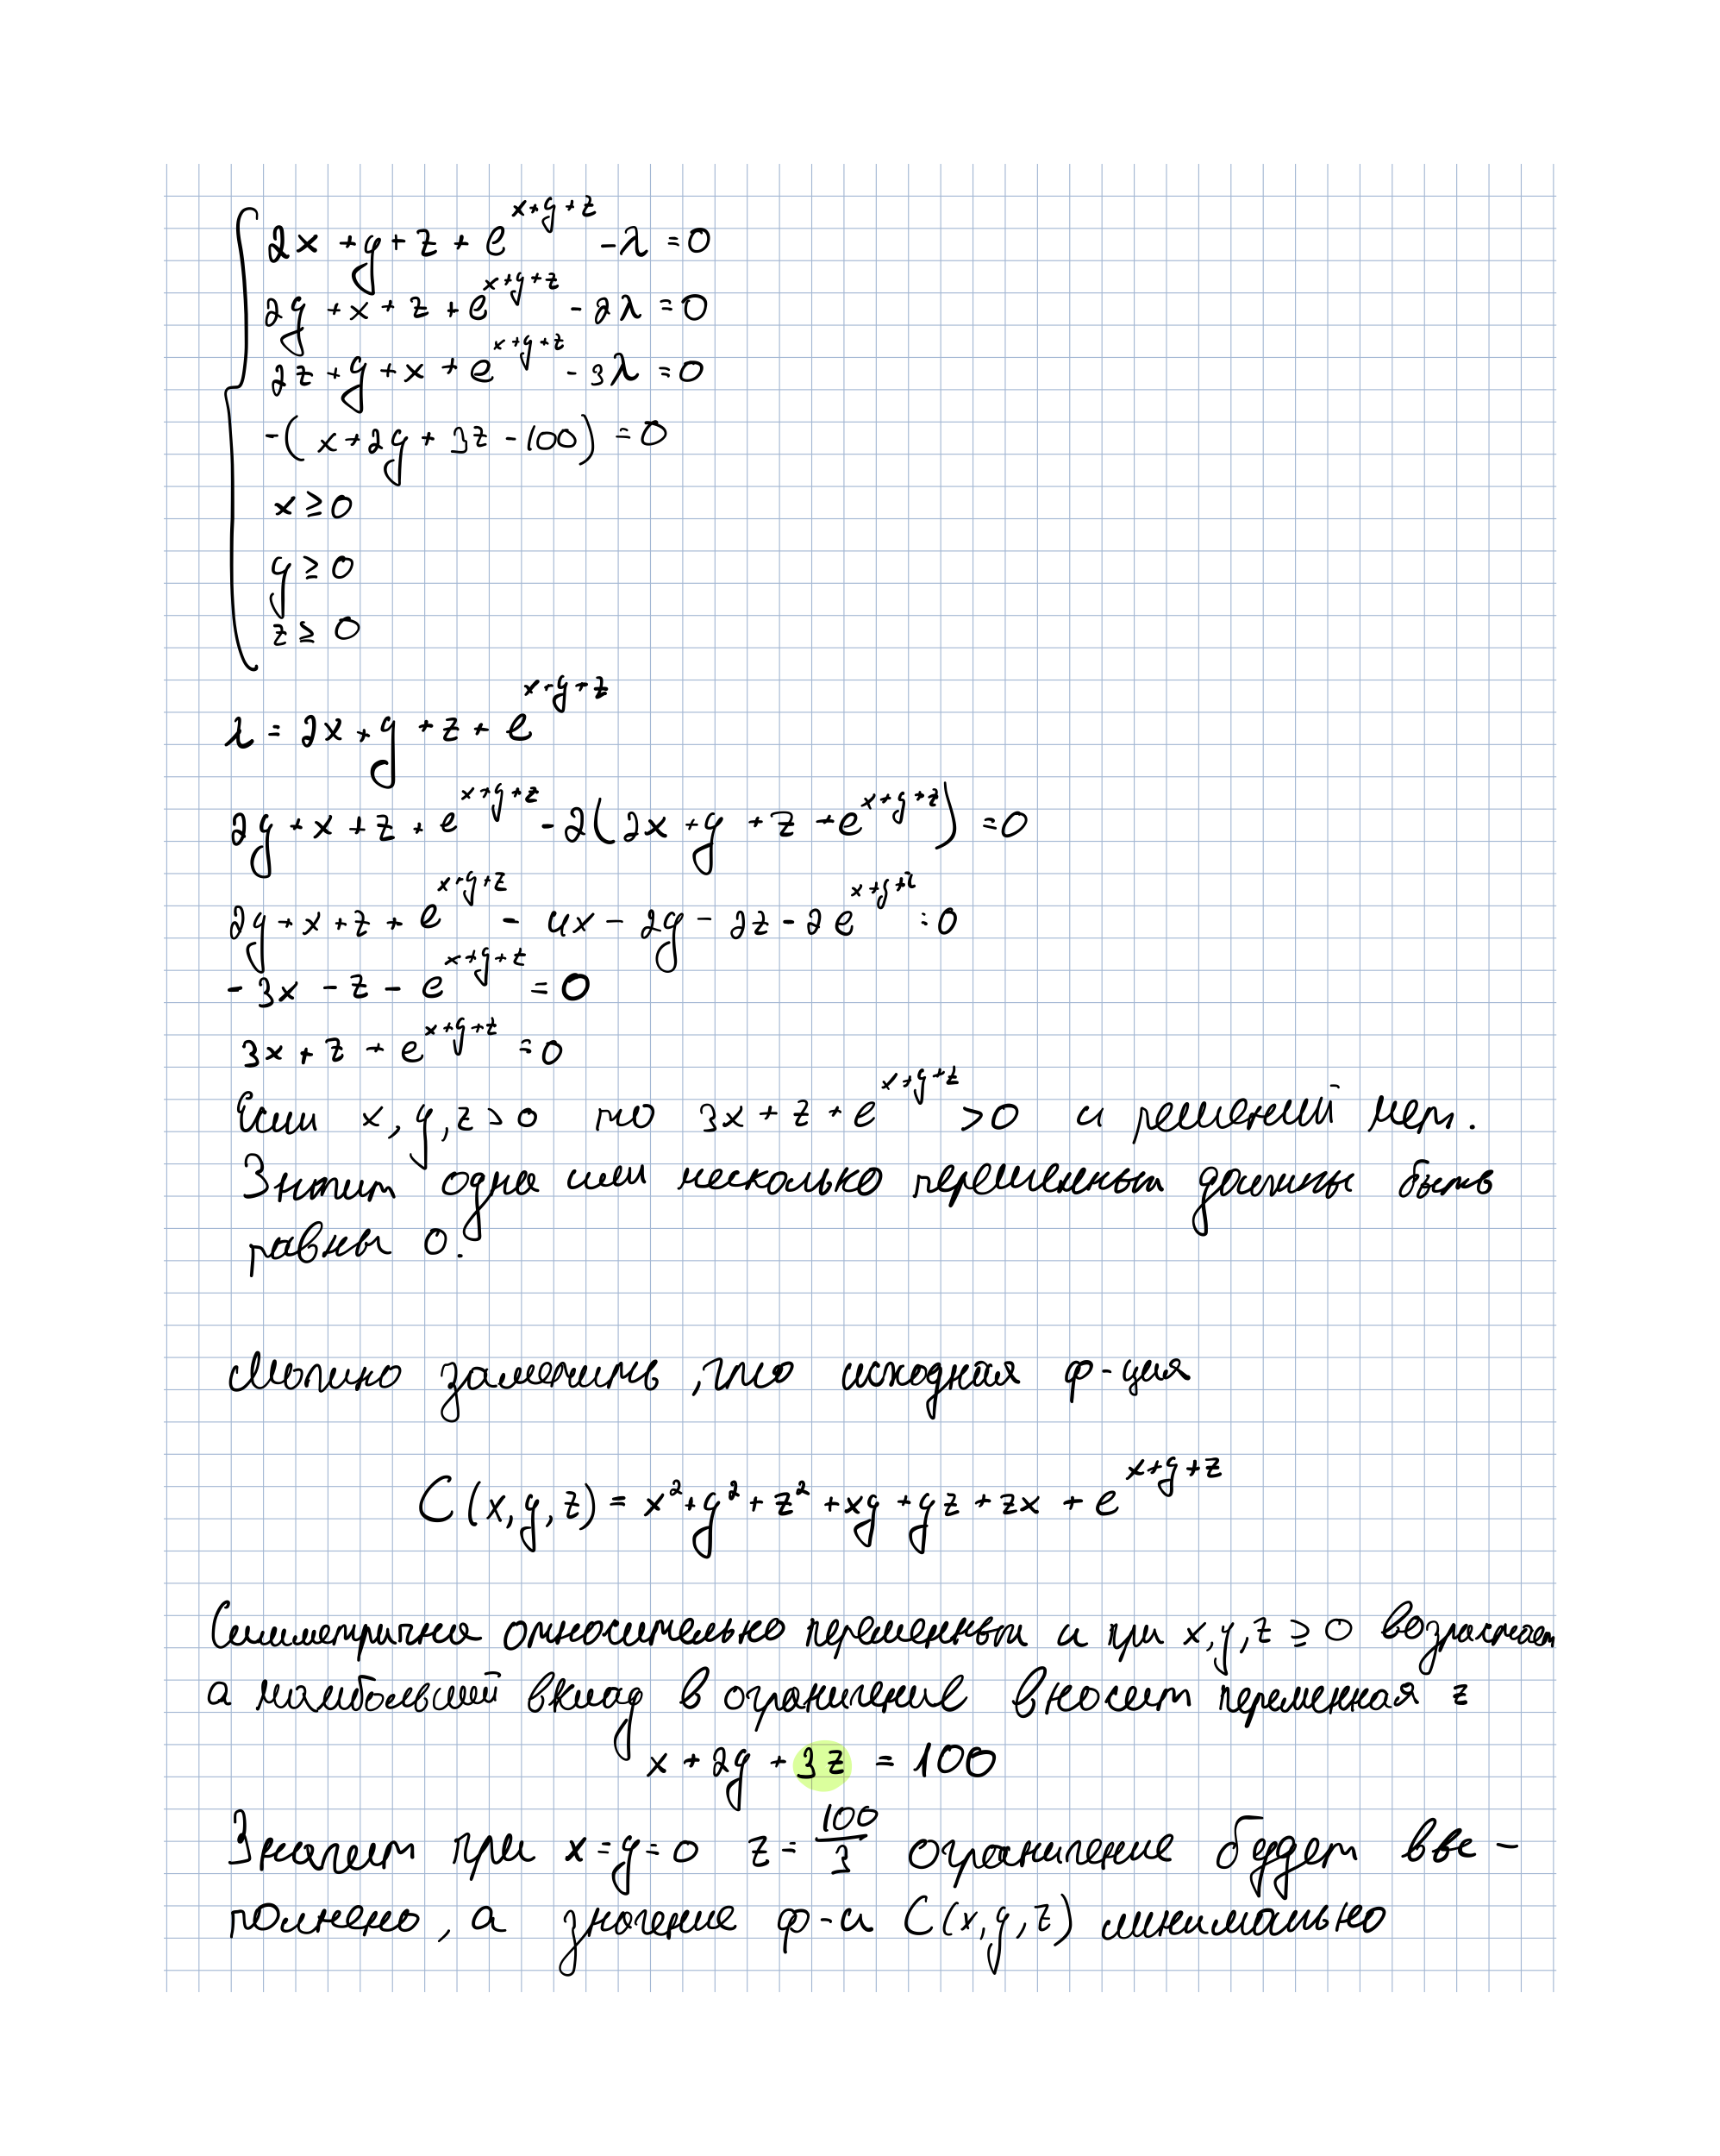 2x + y + z + e^{x+y+z} - λ = 0
2y + x + z + e^{x+y+z} - 2λ = 0
2z + y + x + e^{x+y+z} - 3λ = 0
-(x + 2y + 3z - 100) = 0
x ≥ 0
y ≥ 0
z ≥ 0
λ = 2x + y + z + e^{x+y+z}
2y + x + z + e^{x+y+z} - 2(2x + y + z + e^{x+y+z}) = 0
2y + x + z + e^{x+y+z} - 4x - 2y - 2z - 2e^{x+y+z} = 0
-3x - z - e^{x+y+z} = 0
3x + z + e^{x+y+z} = 0
Если x, y, z > 0 то 3x + z + e^{x+y+z} > 0 и решений нет.
Значит одна или несколько переменных должны быть
равны 0.
Можно заметить, что исходная ф-ция
C(x, y, z) = x² + y² + z² + xy + yz + zx + e^{x+y+z}
Симметрична относительно переменных и при x, y, z ≥ 0 возрастает
а наибольший вклад в ограничение вносит переменная z
x + 2y + 3z = 100
Значит при x = y = 0 z = 100/3 ограничение будет вы-
полнено, а значение ф-и C(x, y, z) минимально